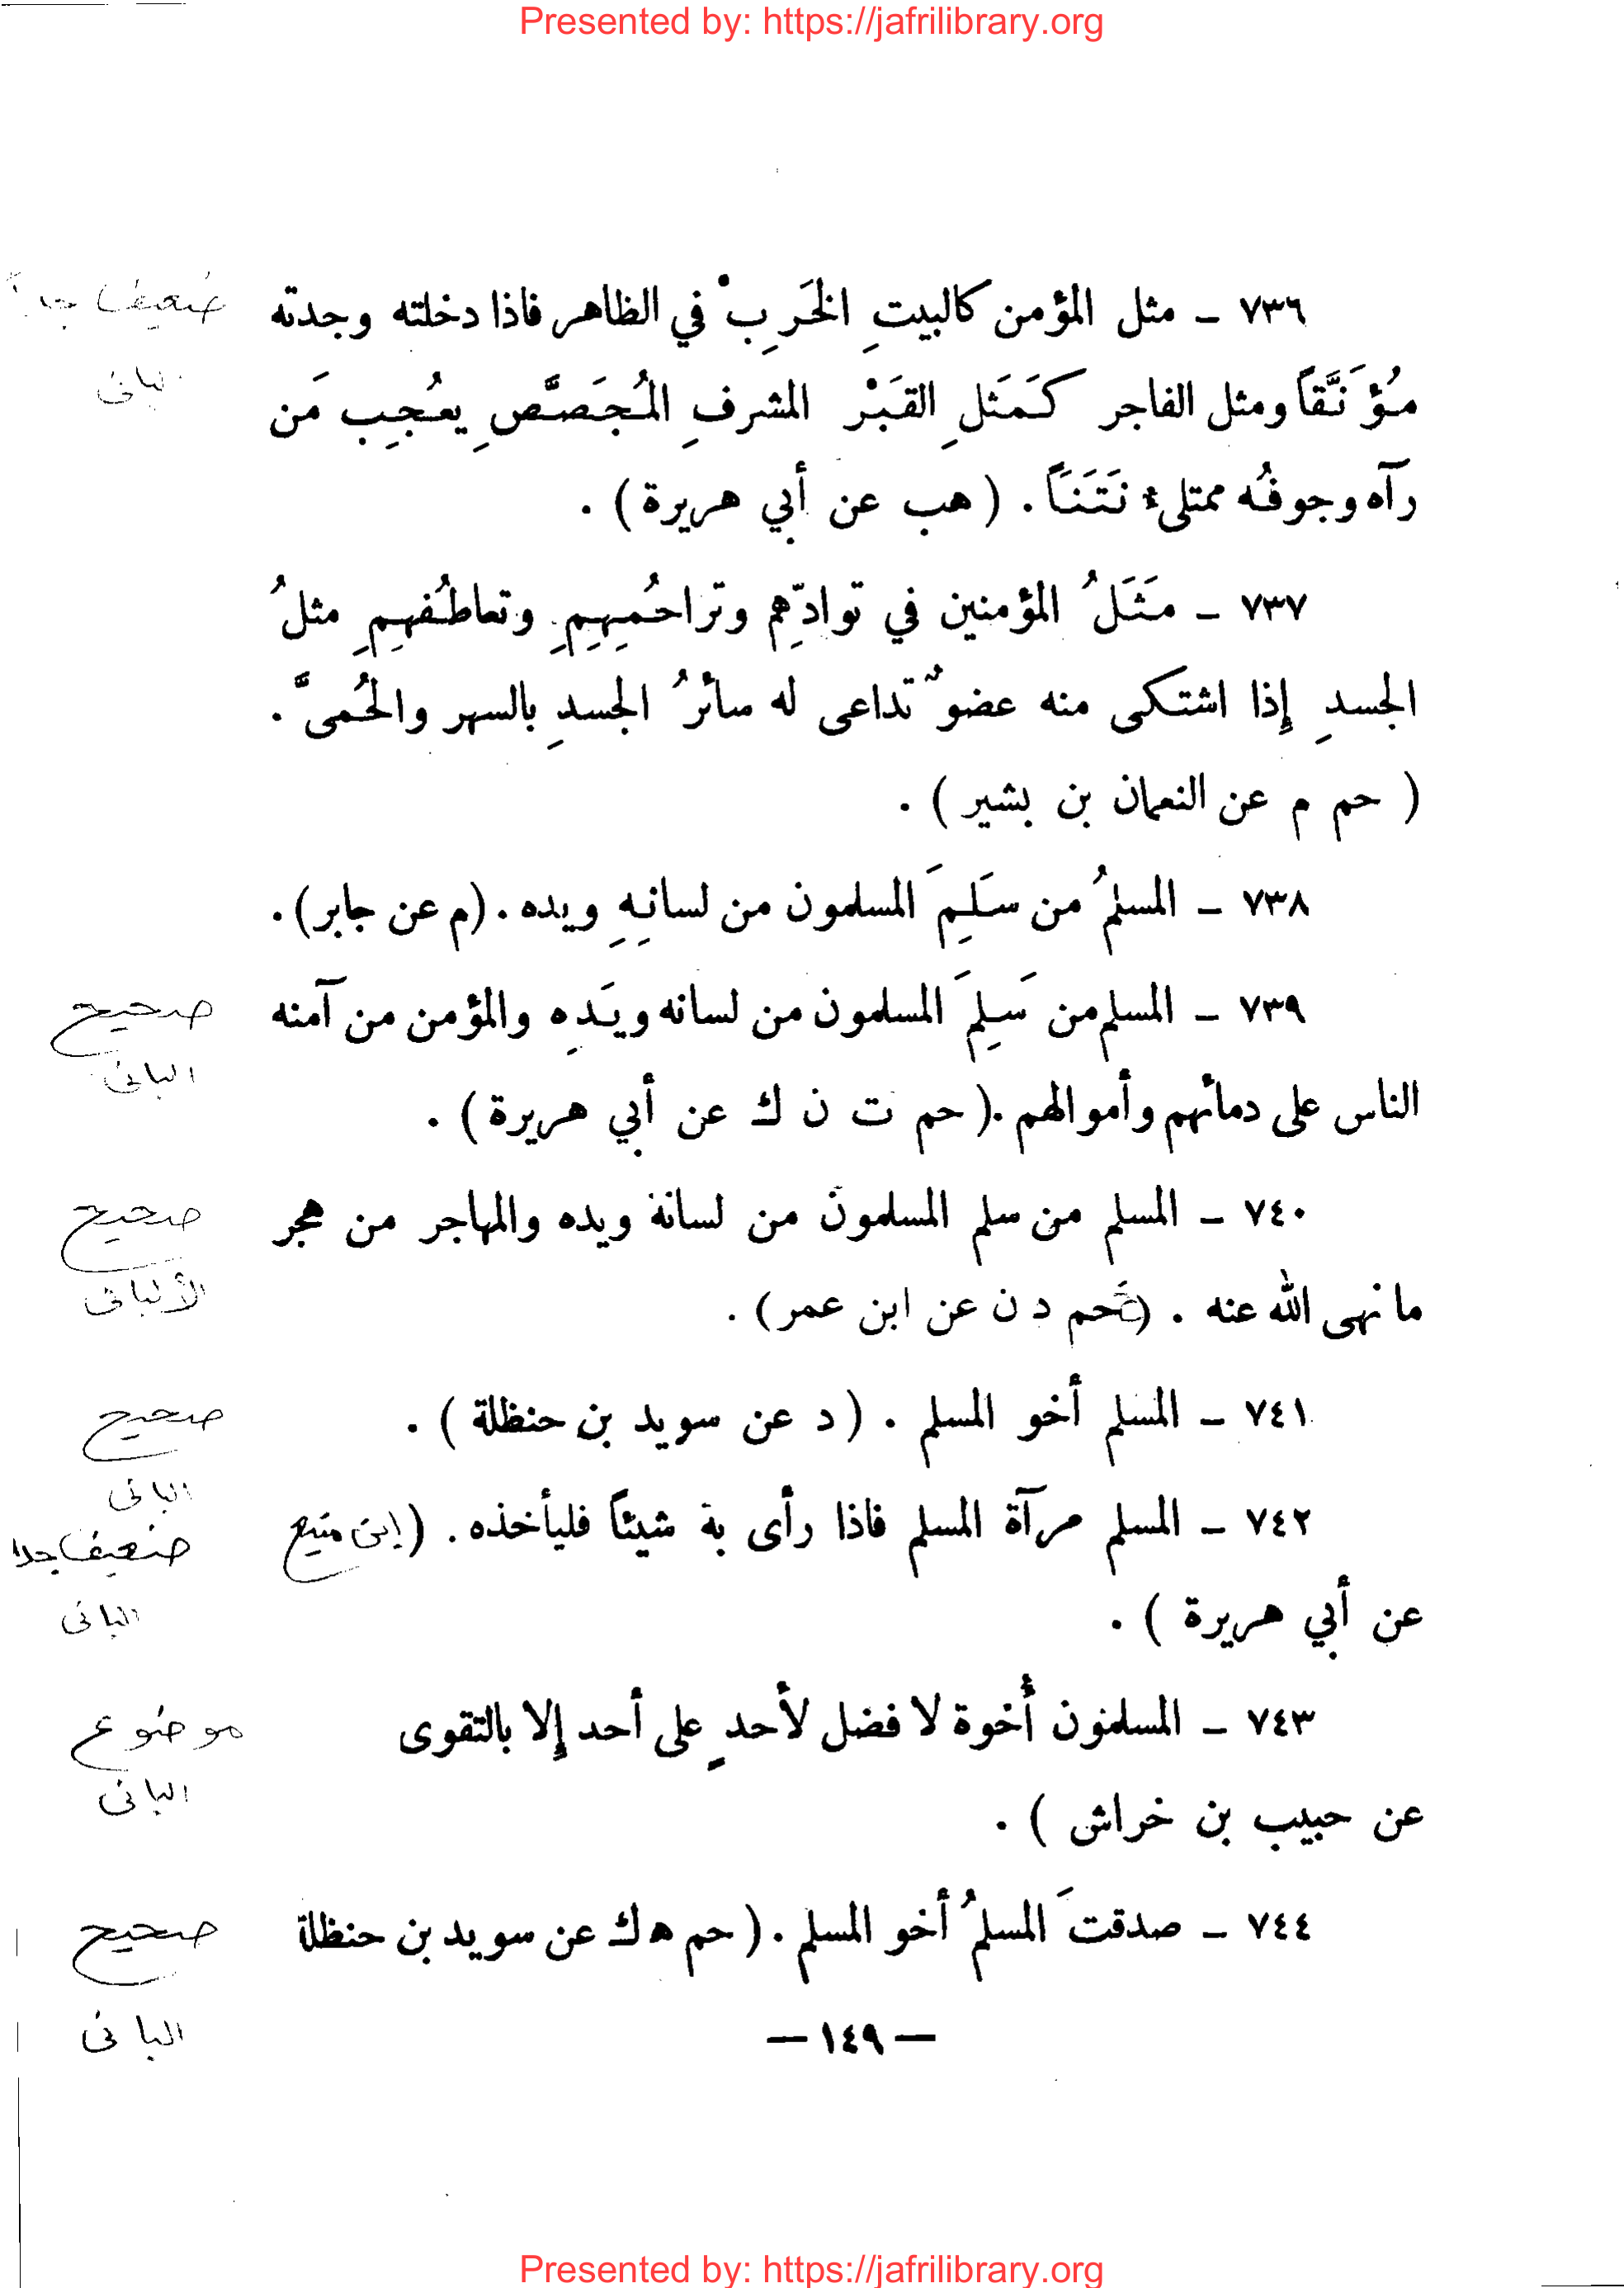 Presented by: https://jafrilibrary.org
٧٣٦ – مثل المؤمن كالبيتِ الخَرِبْ في الظاهر فاذا دخلته وجدته
ضعيف جداً
مُؤَنَّقاً ومثل الفاجر كَمَثَلِ القَبْر المشرفِ المُجَصَّصِ يعُجِب مَن
الباني
رآه وجوفُه ممتلىء نَتَنَاً . ( هب عن أبي هريرة ) .
٧٣٧ – مَثَلُ المؤمنين في توادِّهم وتراحُمِهِمِ وتعاطُفهِمِ مثلُ
الجسدِ إذا اشتكى منه عضوٌ تداعى له سائرُ الجسدِ بالسهر والحُمىَّ .
( حم م عن النعمان بن بشير ) .
٧٣٨ – المسلمُ من سَلِمَ المسلمون من لسانِهِ ويده . (م عن جابر) .
٧٣٩ – المسلم من سَلِمَ المسلمون من لسانه ويَدِه والمؤمن من آمنه
صحيح
البانى
الناس على دمائهم وأموالهم .( حم ت ن ك عن أبي هريرة ) .
٧٤٠ – المسلم من سلم المسلمون من لسانة ويده والمهاجر من هجر
صحيح
الألبانى
ما نهى الله عنه . (خ حم د ن عن ابن عمر) .
٧٤١ – المسلم أخو المسلم . ( د عن سويد بن حنظلة ) .
صحيح
البانى
٧٤٢ – المسلم مرآة المسلم فاذا رأى بة شيئاً فليأخذه . (ابن منيع
ضعيف جدا
البانى
عن أبي هريرة ) .
٧٤٣ – المسلمون أُخوة لا فضل لأحدٍ على أحد إلا بالتقوى
موضوع
البانى
عن حبيب بن خراش ) .
٧٤٤ – صدقتَ المسلمُ أخو المسلم .( حم ه ك عن سويد بن حنظلة
صحيح
البانى
— ١٤٩ —
Presented by: https://jafrilibrary.org